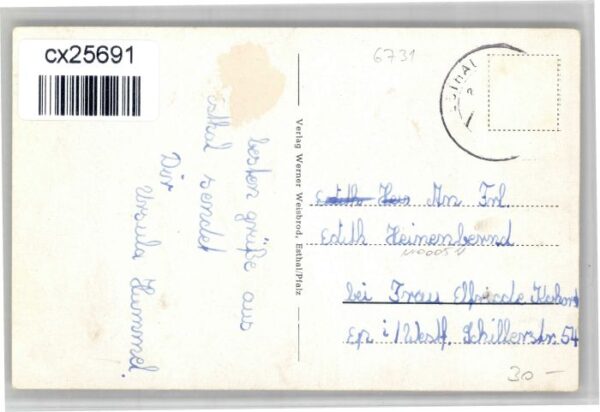 cx25691
6731
ESTHAL
besten grüße aus
Esthal sendet
Dir
Ursula Hummel
Verlag Werner Weisbrod, Esthal/Pfalz
Edith An Frl.
Edith Heinenbernd
bei Frau Elfriede
i/Westf. Schillerstr. 54
30-